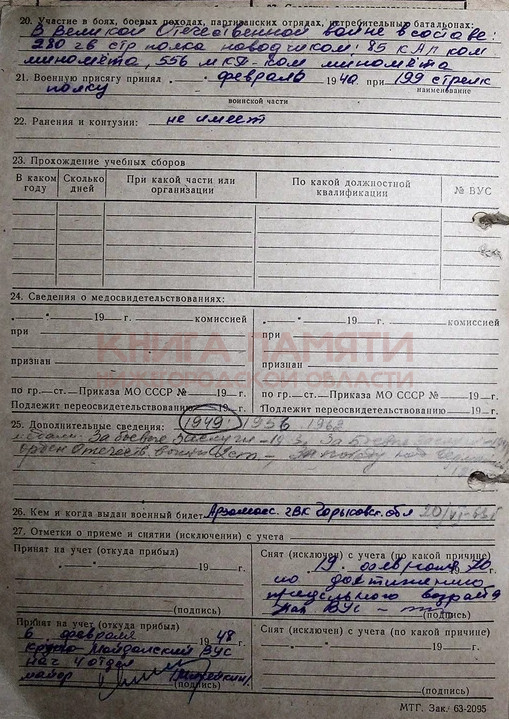 20. Участие в боях, боевых походах, партизанских отрядах, истребительных батальонах:
В Великой Отечественной войне в составе:
280 гв стр полка наводчиком: 85 к АП ком
миномёта, 556 мкд ком миномёта
21. Военную присягу принял " - " февраль 1940. при 199 стрелк
полку
наименование
воинской части
22. Ранения и контузии: не имеет
23. Прохождение учебных сборов
В каком году Сколько дней При какой части или организации По какой должностной квалификации № ВУС
24. Сведения о медосвидетельствованиях:
„ . " . 19 г. комиссией „ . " . 19 г. комиссией
при при
КНИГА ПАМЯТИ
НИЖЕГОРОДСКОЙ ОБЛАСТИ
признан признан
по гр. ст. Приказа МО СССР № 19 г. по гр. ст. Приказа МО СССР № 19 г.
Подлежит переосвидетельствованию 19 г. Подлежит переосвидетельствованию 19 г.
25. Дополнительные сведения: 1949; 1956 1962
За боевые заслуги - За боевые
орден Отечеств. войны ст - За победу над
26. Кем и когда выдан военный билет Арзамасс. ГВК Горьковск. обл
27. Отметки о приеме и снятии (исключении) с учета
Принят на учет (откуда прибыл)
19 г.
(подпись)
Снят (исключен) с учета (по какой причине)
19. февраля 70 г.
по достижению
предельного возраста
ВУС
(подпись)
Принят на учет (откуда прибыл)
6. февраля 1948 г.
Майданский ВУС
нач 4 отдел
майор
(подпись)
Снят (исключен) с учета (по какой причине)
19 г.
(подпись)
МТГ. Зак. 63-2095